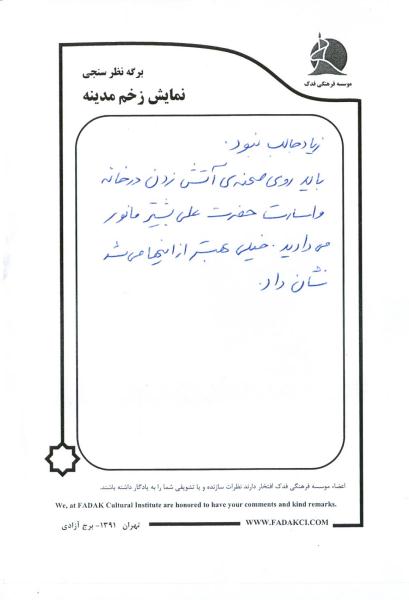 موسسه فرهنگی فدک
برگه نظر سنجی
نمایش زخم مدینه
زیاد جالب نبود.
باید روی صحنه‌ی آتش زدن درخانه
و اسارت حضرت علی بیشتر مانور
می دادید. خیلی بهتر از اینها می شد
نشان داد.
اعضاء موسسه فرهنگی فدک افتخار دارند نظرات سازنده و یا تشویقی شما را به یادگار داشته باشند.
We, at FADAK Cultural Institute are honored to have your comments and kind remarks.
تهران ۱۳۹۱- برج آزادی
WWW.FADAKCI.COM